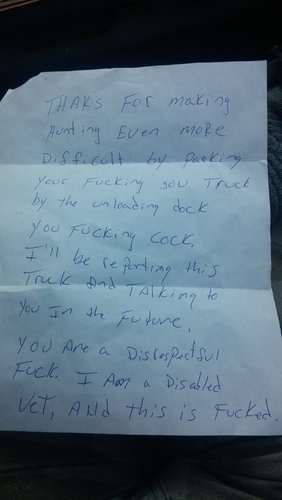 THAKS FOR making
Hunting Even more
Difficult by Parking
your Fucking gov Truck
by the unloading dock
you Fucking Cock.
I'll be reporting this
Truck and TAlking to
You In the Future.
you Are a Disrespectful
Fuck. I Am a Disabled
Vet, AND this is Fucked.